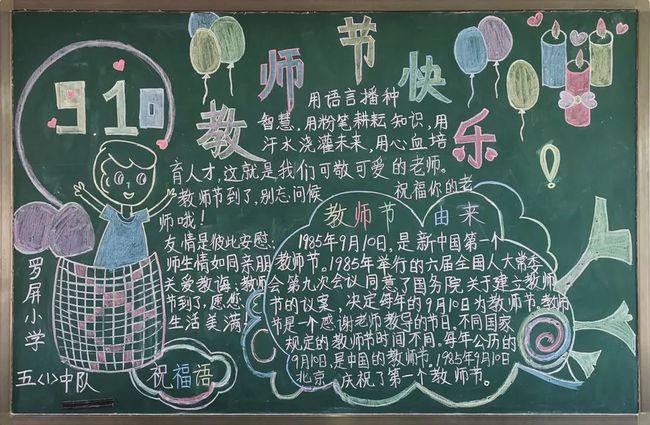 教师节快乐
910
用语言播种
智慧，用粉笔耕耘知识，用
汗水浇灌未来，用心血培
育人才，这就是我们可敬可爱的老师。
教师节到了，别忘问候
祝福你的老
师哦！
友情是彼此安慰；
师生情如同亲朋
关爱教诲；教师
节到了，愿您
生活美满
祝福语
教师节 由来
1985年9月10日，是新中国第一个
教师节。1985年举行的六届全国人大常委
会第九次会议同意了国务院关于建立教师
节的议案，决定每年的9月10日为教师节。教师
节是一个感谢老师教导的节日。不同国家
规定的教师节时间不同。每年公历的
9月10日，是中国的教师节。1985年9月10日
北京 庆祝了第一个教师节。
罗屏小学
五<1>中队